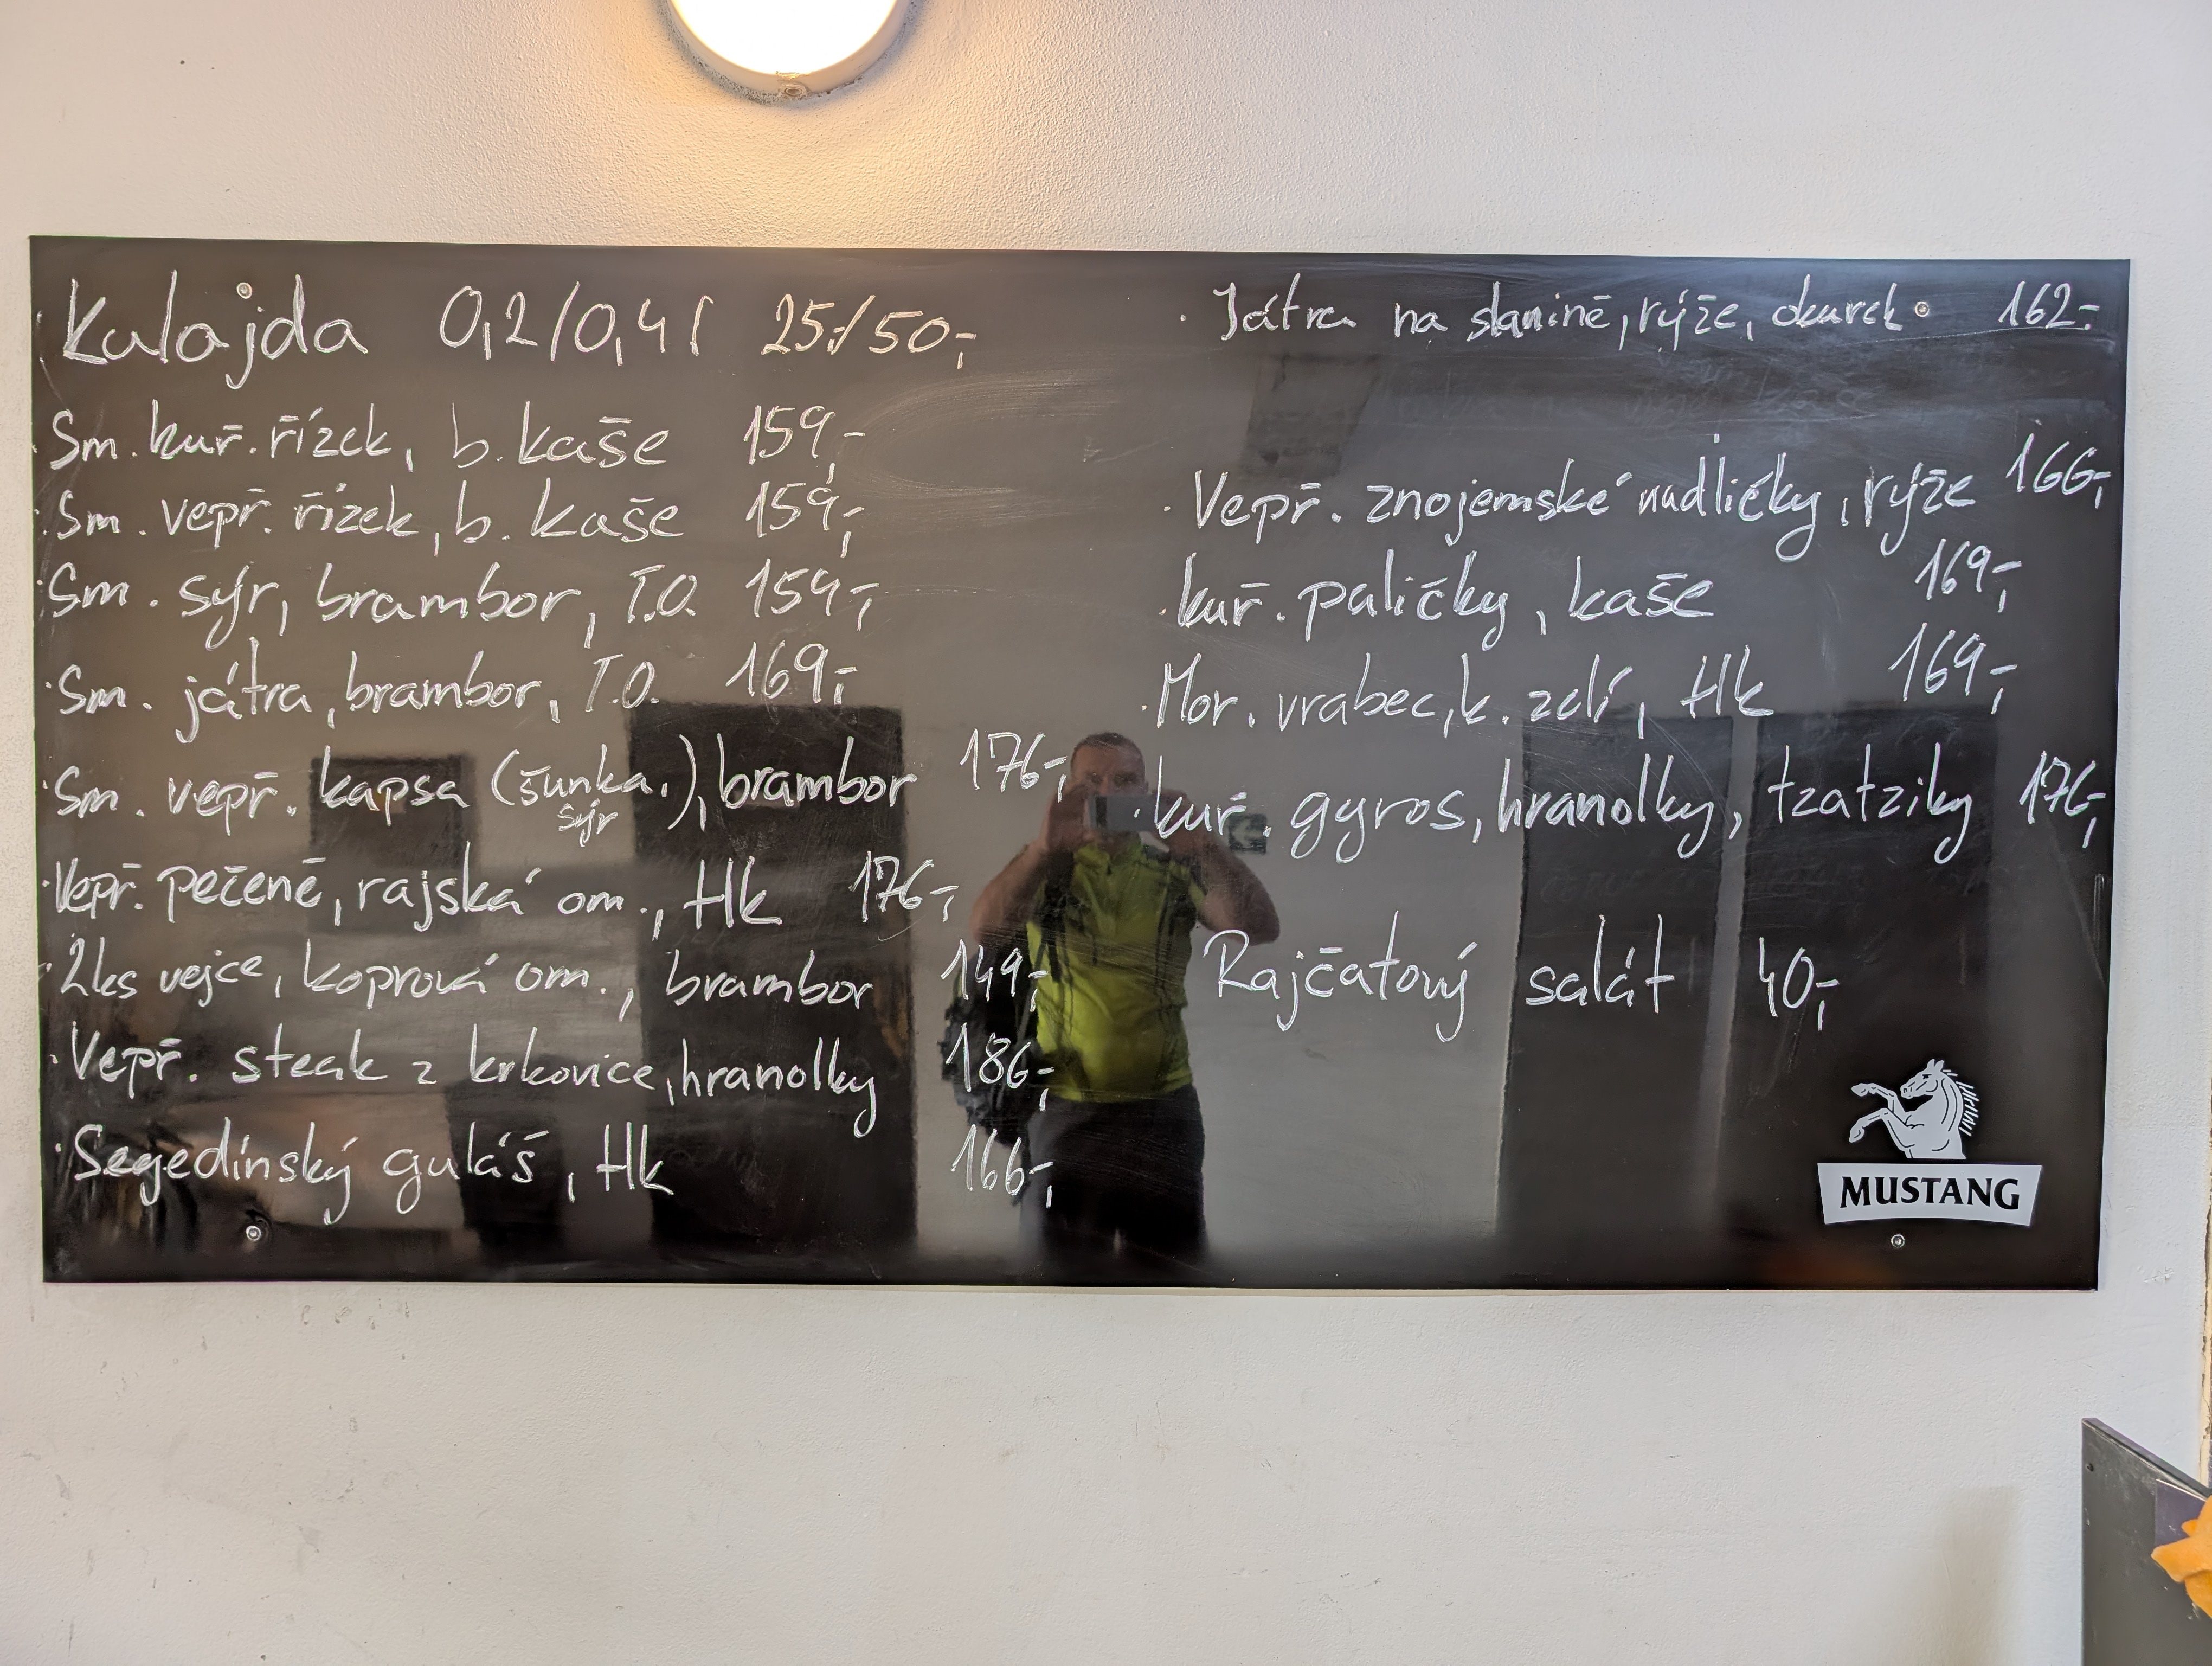 Kulajda 0,2/0,4l 25,-/50,-
Sm. kuř. řízek, b. kaše 159,-
Sm. vepř. řízek, b. kaše 159,-
Sm. sýr, brambor, T.O. 159,-
Sm. játra, brambor, T.O. 169,-
Sm. vepř. kapsa (šunka, sýr), brambor 176,-
Vepř. pečeně, rajská om., Hk 176,-
2ks vejce, koprová om., brambor 149,-
Vepř. steak z krkovice, hranolky 186,-
Segedínský guláš, Hk 166,-
Játra na slanině, rýže, okurek 162,-
Vepř. znojemské nudličky, rýže 166,-
kuř. paličky, kaše 169,-
Mor. vrabec, k. zelí, Hk 169,-
kuř. gyros, hranolky, tzatziky 176,-
Rajčatový salát 40,-
MUSTANG